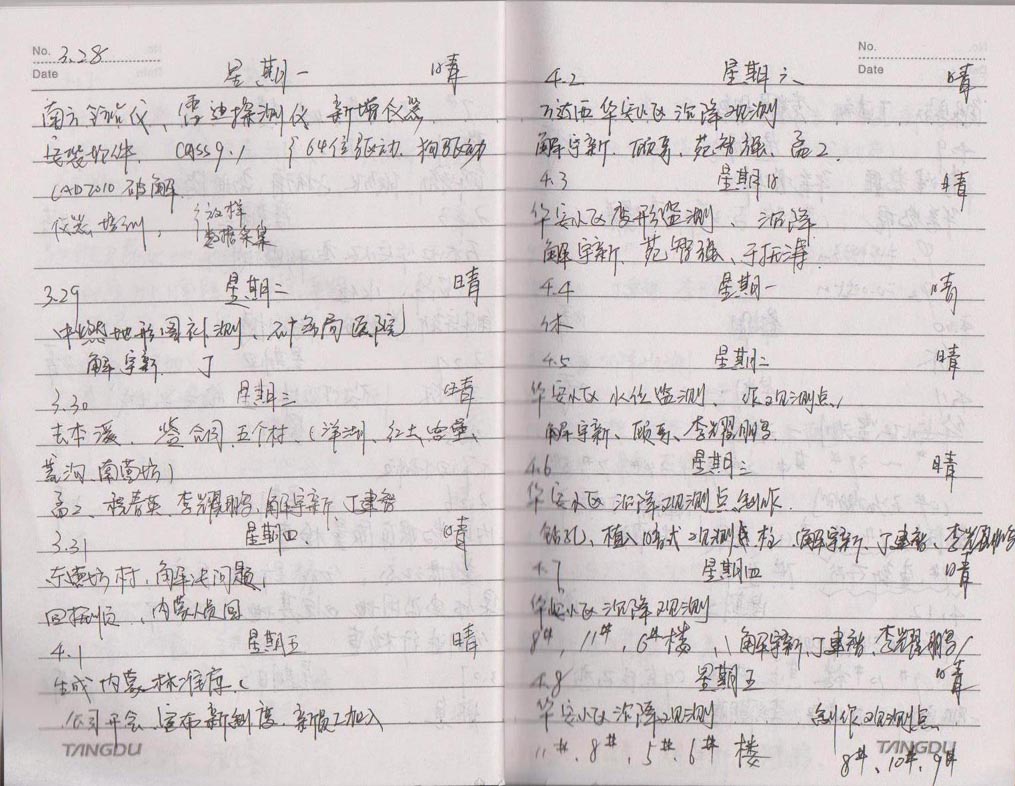 No. 3.28
Date 星期一 晴
南方全站仪、雷迪探测仪 新增仪器.
安装软件. CASS9.1 64位驱动、狗驱动
CAD2010 破解
仪器培训, 放样
数据采集
3.29 星期二 晴
中燃地形图补测
解宇新、丁
3.30 星期三 晴
去本溪、签合同 五个村、(洋湖、
南营坊)
孟2、 李耀鹏、解宇新 丁建智
3.31 星期四 晴
村、解决问题,
回抚顺、内蒙人员回
4.1 星期五 晴
生成 内蒙 标准库、(
公司开会、宣布新制度、新员工加入
TANGDU
No.
Date
4.2 星期六 晴
万达西 华安小区 沉降观测
解宇新、顾系、苑智强、孟2.
4.3 星期日 晴
华安小区 变形监测、沉降
解宇新、苑智强、
4.4 星期一 晴
休
4.5 星期二 晴
华安小区 水位监测、 观测点,
解宇新、顾系、李耀鹏
4.6 星期三 晴
华安小区 沉降观测点制作.
钻孔、植入 式 观测点 解宇新、丁建智、李耀鹏
4.7 星期四 晴
华安小区 沉降观测
8#, 11#, 6# 楼 解宇新、丁建智、李耀鹏
4.8 星期五 晴
华安小区 沉降观测 制作观测点
11#、8#、5#、6# 楼 8#、10#、9#
TANGDU